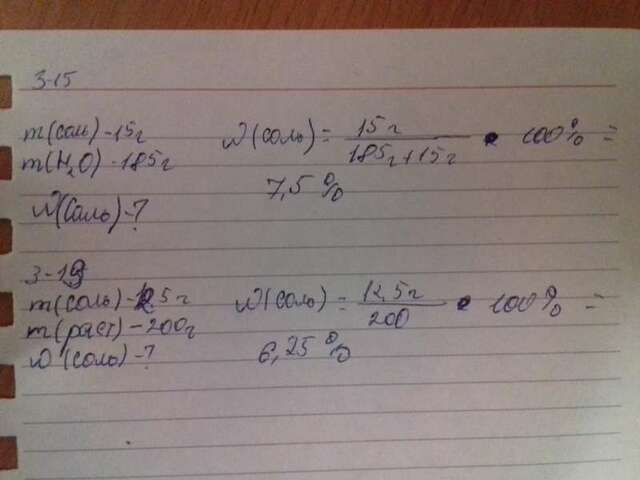 3-15
m(соль)-15г
m(H₂O)-185г
W(соль)-?
W(соль)= 15г / 185г+15г • 100% =
7,5%
3-19
m(соль)-12,5г
m(раст)-200г
W(соль)-?
W(соль) = 12,5г / 200 • 100% =
6,25%